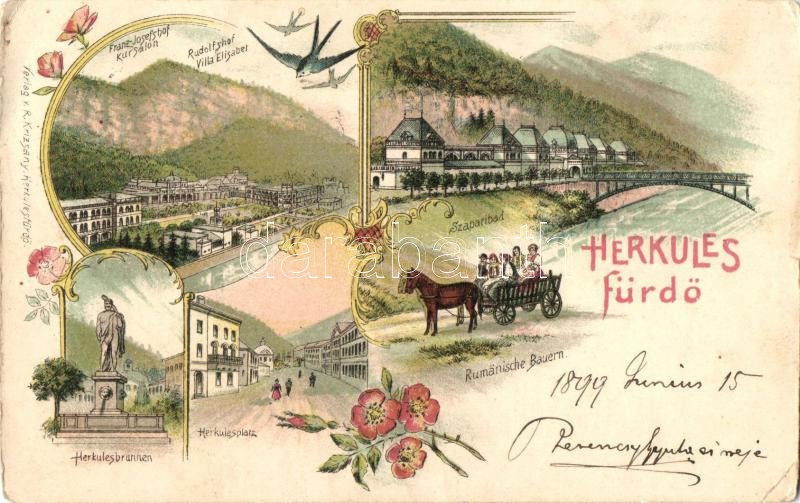 Franz-Josefshof
Kursalon
Rudolfshof
Villa Elisabet
Verlag v. R. Krizsány, Herkulesfürdő.
Szaparibad
HERKULES
fürdő
Rumänische Bauern.
Herkulesbrunnen
Herkulesplatz
1899 Junius 15
darabanth